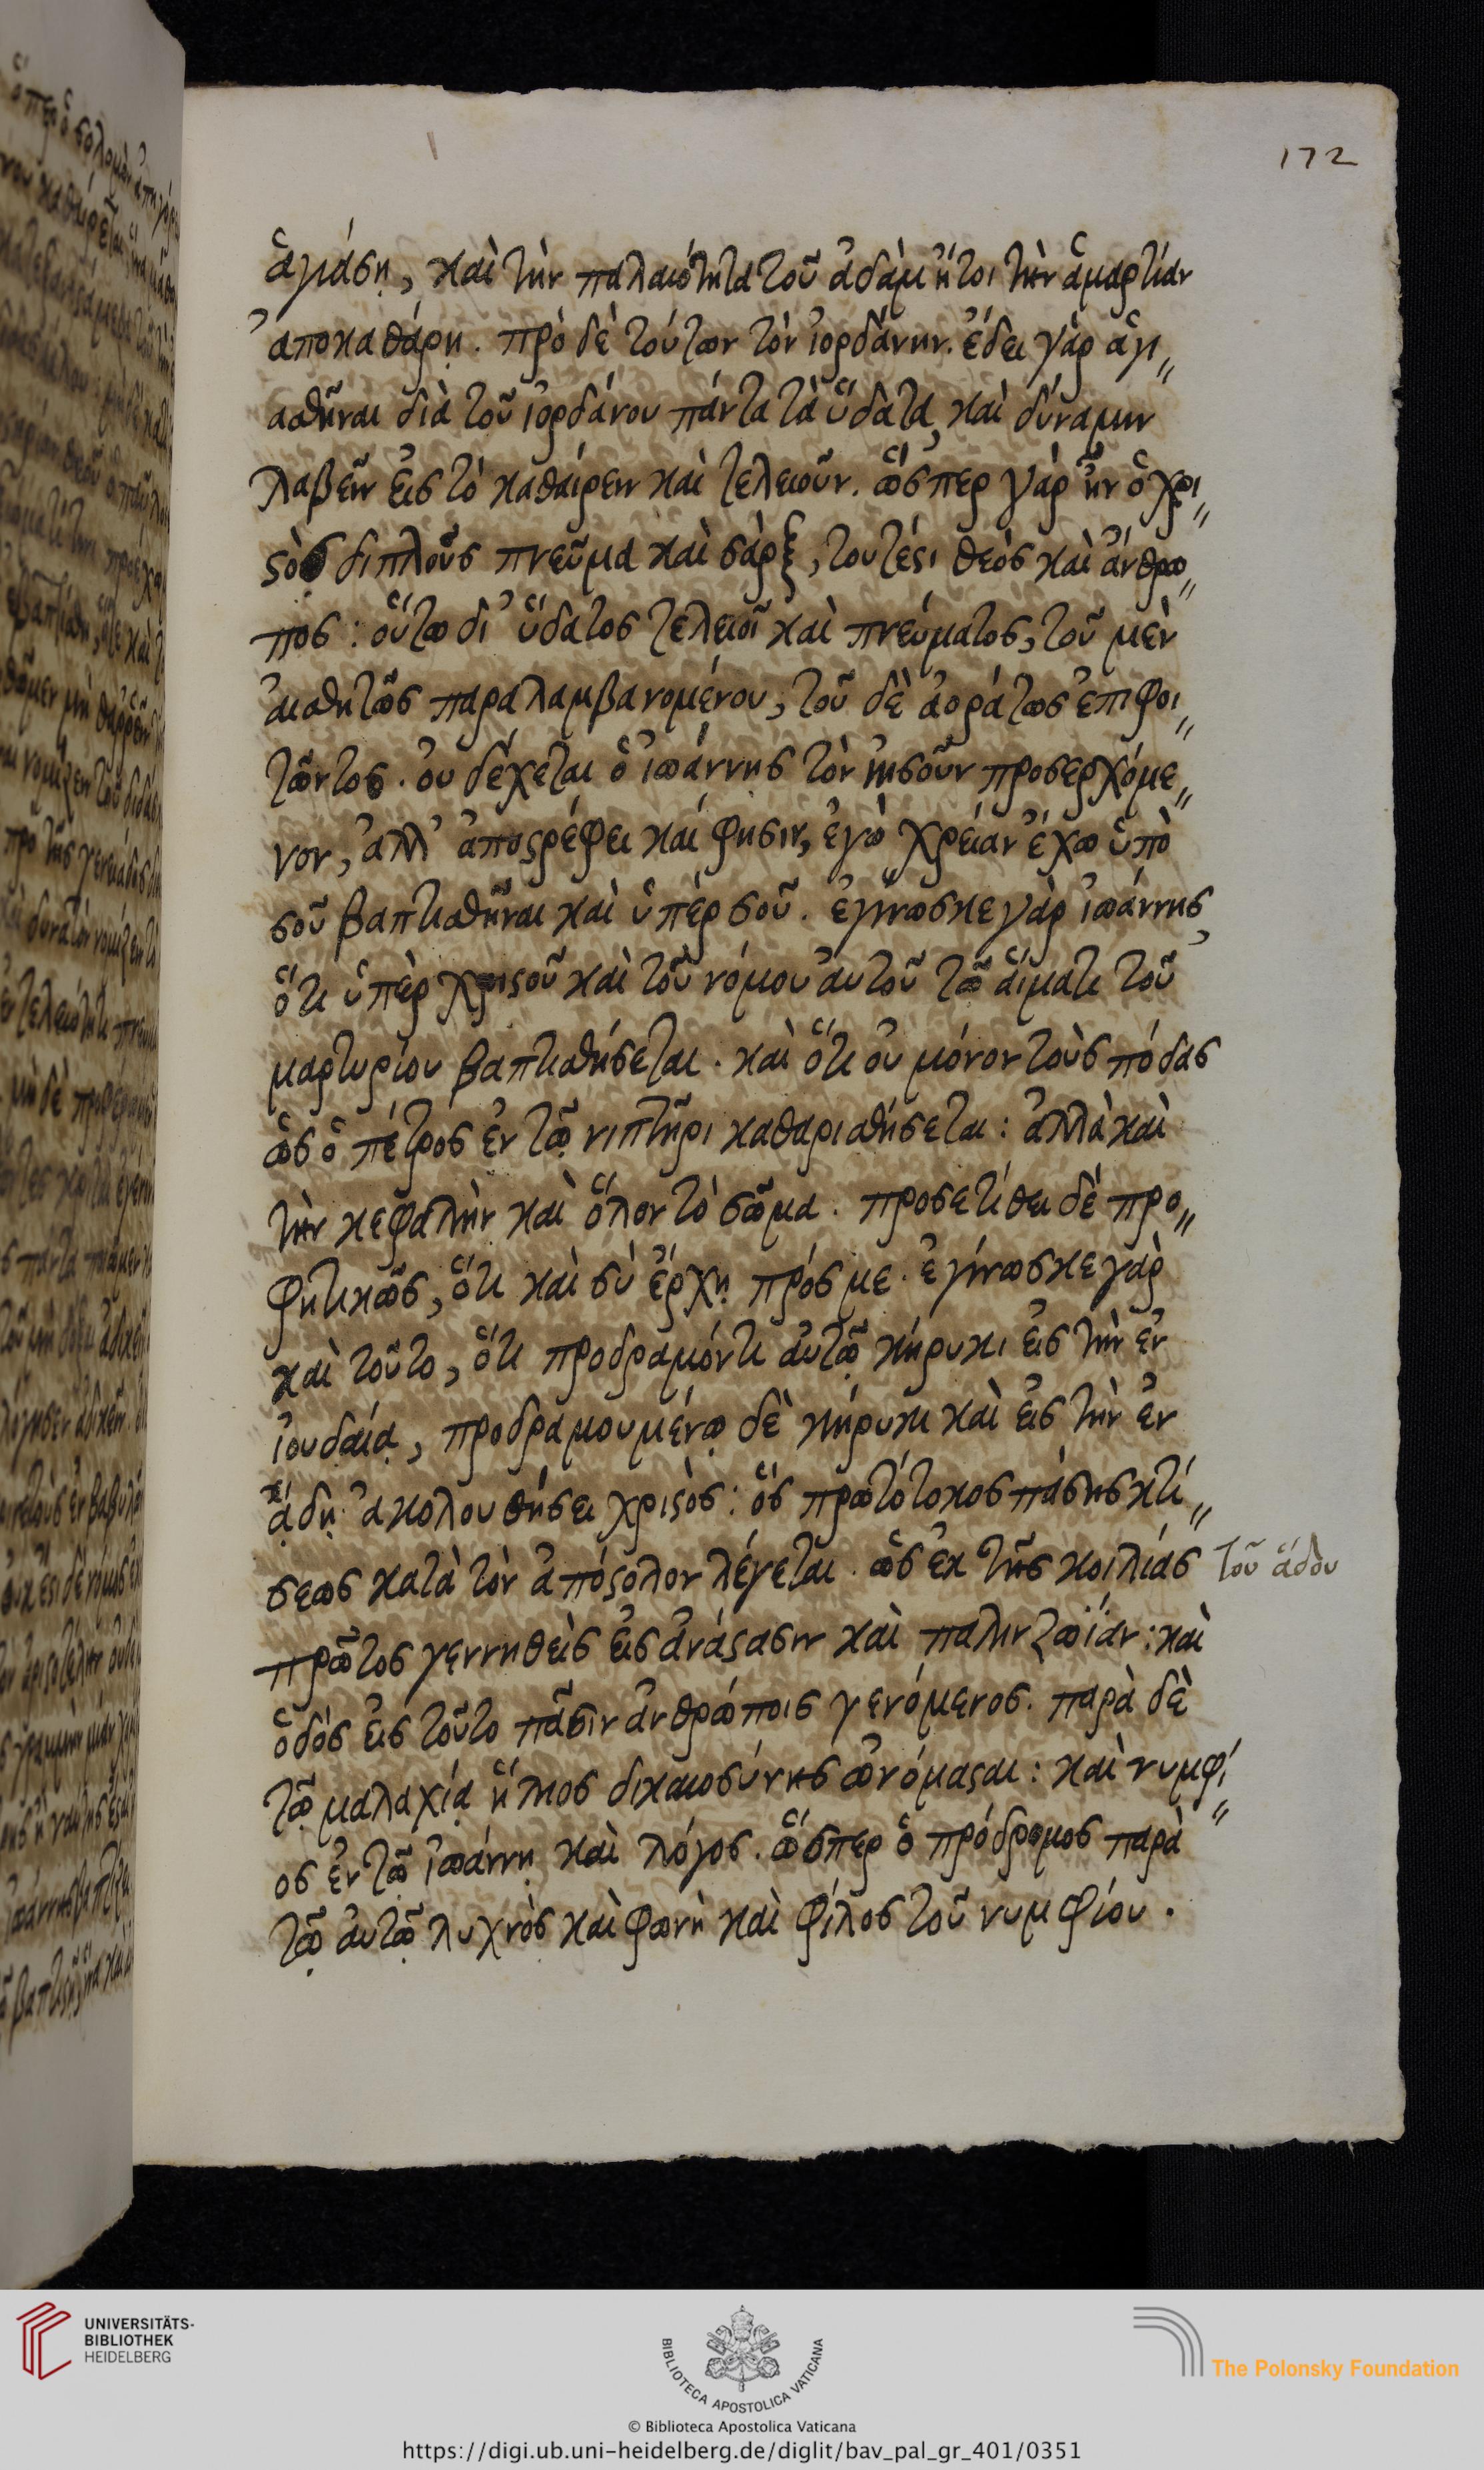 172
ἁγιάσῃ, καὶ τὴν παλαιότητα τοῦ ἀδὰμ ἤτοι τὴν ἁμαρτίαν
ἀποκαθάρῃ. πρὸ δὲ τούτων τὸν ἰορδάνην. ἔδει γὰρ ἁγι„
ασθῆναι διὰ τοῦ ἰορδάνου πάντα τὰ ὕδατα, καὶ δύναμιν
λαβεῖν εἰς τὸ καθαίρειν καὶ τελειοῦν. ὥσπερ γὰρ ἦν ὁ χρι„
ϛὸς διπλοῦς πνεῦμα καὶ σὰρξ, τουτέϛι θεὸς καὶ ἄνθρω„
πος: οὕτω δι’ ὕδατος τελειοῖ καὶ πνεύματος, τοῦ μὲν
αἰσθητῶς παραλαμβανομένου, τοῦ δὲ ἀοράτως ἐπιφοι„
τῶντος. οὐ δέχεται ὁ ἰωάννης τὸν ἰησοῦν προσερχόμε„
νον, ἀλλ’ ἀποϛρέφει καί φησιν, ἐγὼ χρείαν ἔχω ὑπὸ
σοῦ βαπτισθῆναι καὶ ὑπὲρ σοῦ. ἐγίνωσκε γὰρ ἰωάννης,
ὅτι ὑπὲρ χριϛοῦ καὶ τοῦ νόμου αὐτοῦ τῶ αἵματι τοῦ
μαρτυρίου βαπτισθήσεται. καὶ ὅτι οὐ μόνον τοὺς πόδας
ὡς ὁ πέτρος ἐν τῶ νιπτῆρι καθαρισθήσεται: ἀλλὰ καὶ
τὴν κεφαλὴν καὶ ὅλον τὸ σῶμα. προσετίθει δὲ προ„
φητικῶς, ὅτι καὶ σὺ ἔρχῃ πρός με. ἐγίνωσκε γὰρ
καὶ τοῦτο, ὅτι προδραμόντι αὐτῶ κήρυκι εἰς τὴν ἐν
ἰουδαίᾳ, προδραμουμένῳ δὲ κήρυκι καὶ εἰς τὴν ἐν
ᾅδῃ ἀκολουθήσει χριϛὸς: ὃς πρωτότοκος πάσης κτί„
σεως κατὰ τὸν ἀπόϛολον λέγεται. ὡς ἐκ τῆς κοιλίας τοῦ ἅδου
πρῶτος γεννηθεὶς εἰς ἀνάϛασιν καὶ παλινζωΐαν: καὶ
ὁδὸς εἰς τοῦτο πᾶσιν ἀνθρώποις γενόμενος. παρὰ δὲ
τῷ μαλαχίᾳ ἥλιος δικαιοσύνης ὠνόμαϛαι: καὶ νυμφί„
ος ἐν τῷ ἰωάννῃ καὶ λόγος. ὥσπερ ὁ πρόδρομος παρὰ
τῷ αὐτῷ λυχνὸς καὶ φωνὴ καὶ φίλος τοῦ νυμφίου.
UNIVERSITÄTS-
BIBLIOTHEK
HEIDELBERG
BIBLIOTECA APOSTOLICA VATICANA
The Polonsky Foundation
© Biblioteca Apostolica Vaticana
https://digi.ub.uni-heidelberg.de/diglit/bav_pal_gr_401/0351